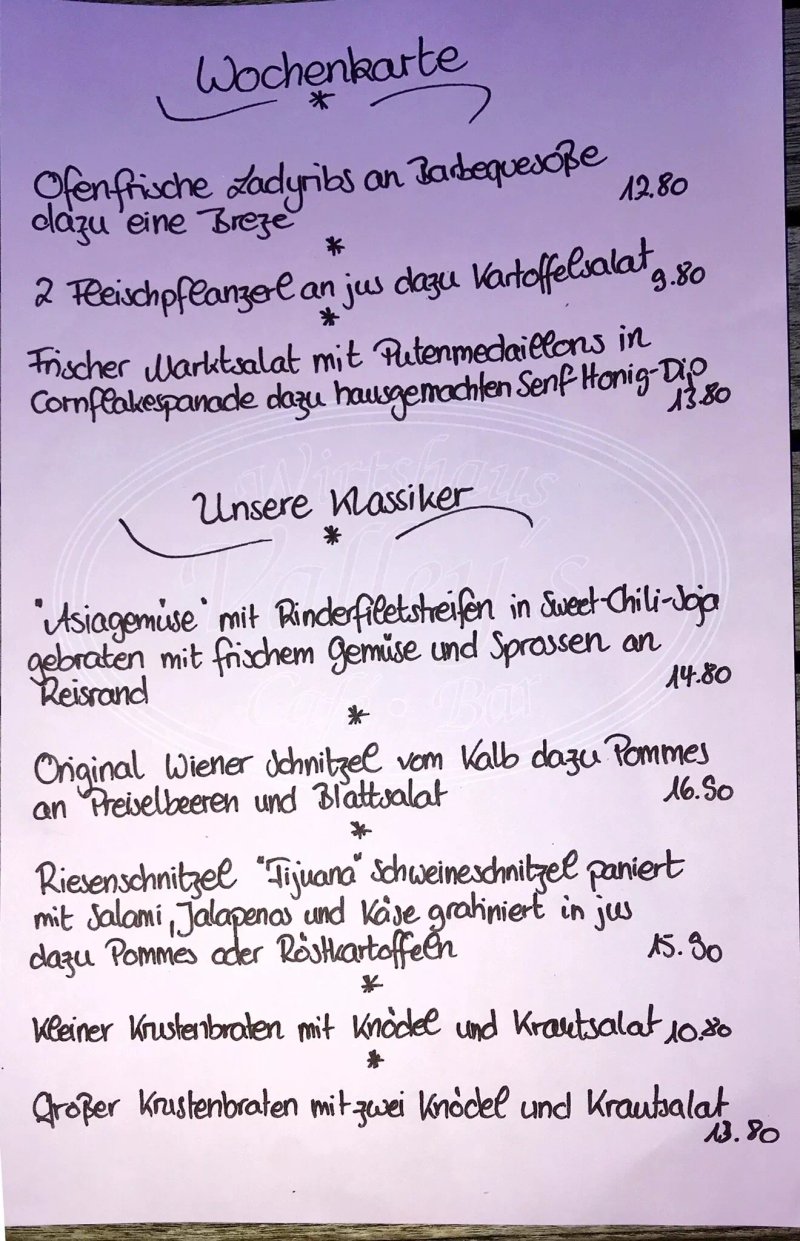 Wochenkarte
*
Ofenfrische Ladyribs an Barbequesoße
dazu eine Breze
12.80
*
2 Fleischpflanzerl an jus dazu Kartoffelsalat
9.80
*
Frischer Marktsalat mit Putenmedaillons in
Cornflakespanade dazu hausgemachten Senf-Honig-Dip
13.80
Wirtshaus
Unsere Klassiker
*
Valley's
"Asiagemüse" mit Rinderfiletstreifen in Sweet-Chili-Soja
gebraten mit frischem Gemüse und Sprossen an
Reisrand
14.80
Café · Bar
*
Original Wiener Schnitzel vom Kalb dazu Pommes
an Preiselbeeren und Blattsalat
16.90
*
Riesenschnitzel "Tijuana" Schweineschnitzel paniert
mit Salami, Jalapenos und Käse gratiniert in jus
dazu Pommes oder Röstkartoffeln
15.90
*
Kleiner Krustenbraten mit Knödel und Krautsalat 10.80
*
Großer Krustenbraten mit zwei Knödel und Krautsalat
13.80